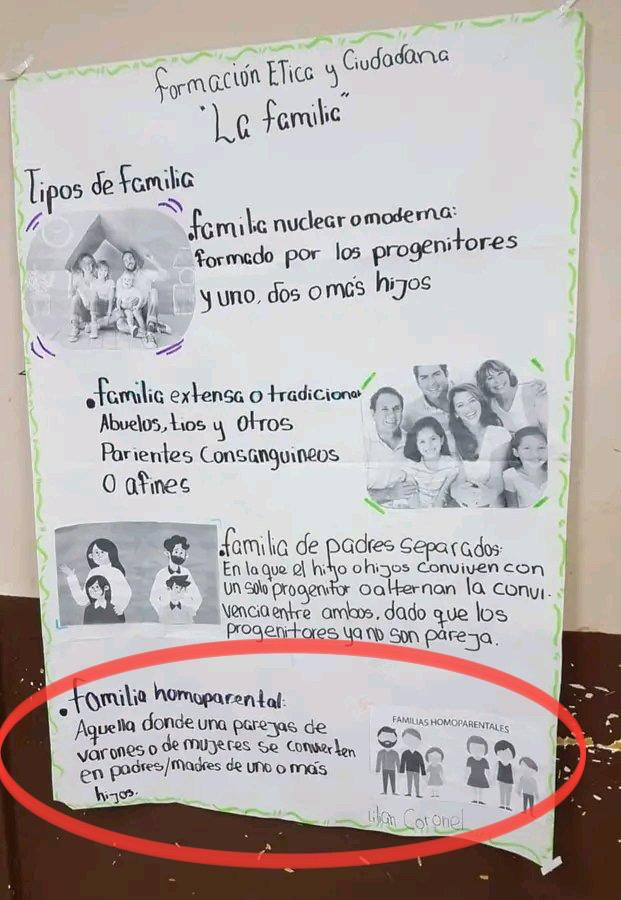 Formación ETica y Ciudadana
"La familia"
Tipos de familia
.familia nuclear o moderna:
formado por los progenitores
y uno, dos o más hijos
.familia extensa o tradicional
Abuelos, tios y otros
Parientes Consanguineos
O afines
.familia de padres separados:
En la que el hijo o hijos conviven con
un solo progenitor o alternan la convi-
vencia entre ambos, dado que los
progenitores ya no son pareja.
.familia homoparental:
Aquella donde una parejas de
varones o de mujeres se convierten
en padres/madres de uno o más
hijos.
FAMILIAS HOMOPARENTALES
Lilian Coronel